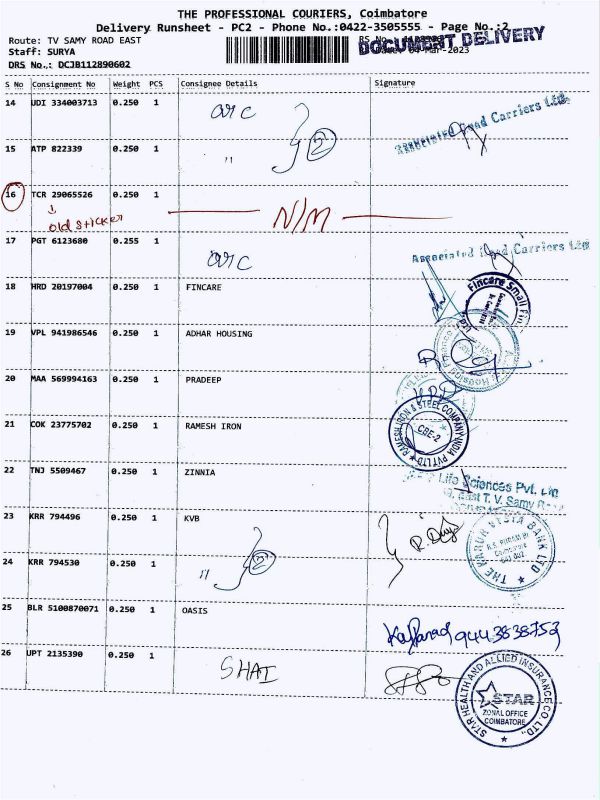 THE PROFESSIONAL COURIERS, Coimbatore
Delivery Runsheet - PC2 - Phone No.:0422-3505555 - Page No.:2
Route: TV SAMY ROAD EAST
DOCUMENT DELIVERY
Staff: SURYA 04-Mar-2023
DRS No.: DCJB112890602
S No Consignment No Weight PCS Consignee Details Signature
14 UDI 334003713 0.250 1 arc 2 Associated Road Carriers Ltd
15 ATP 822339 0.250 1 "
16 TCR 29065526 0.250 1 N/M
old sticker
17 PGT 6123680 0.255 1 arc Associated Road Carriers Ltd
18 HRD 20197004 0.250 1 FINCARE Fincare Small Fin
19 VPL 941986546 0.250 1 ADHAR HOUSING
20 MAA 569994163 0.250 1 PRADEEP
21 COK 23775702 0.250 1 RAMESH IRON RAMESH IRON & STEEL COMPANY INDIA PVT LTD CBE-2
22 TNJ 5509467 0.250 1 ZINNIA Life Sciences Pvt. Ltd
East T. V. Samy Road
23 KRR 794496 0.250 1 KVB THE KARUR VYSYA BANK LTD R.S. PURAM BR Coimbatore 641 002
24 KRR 794530 0.250 1 " 2
25 BLR 5100870071 1 OASIS 9443838753
26 UPT 2135390 0.250 1 SHAI STAR HEALTH AND ALLIED INSURANCE CO. LTD., STAR ZONAL OFFICE COIMBATORE